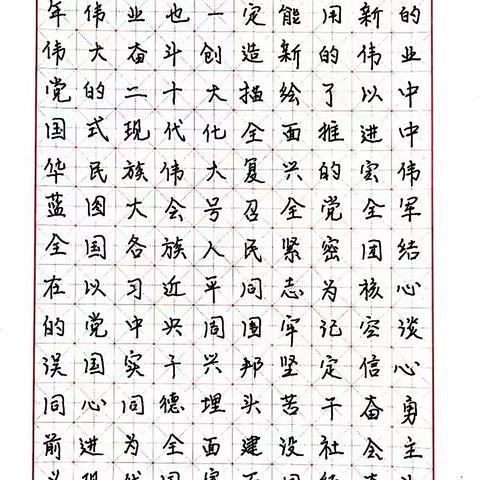 年伟业也一定能用新的
伟大奋斗创造新的伟业
党的二十大描绘了以中
国式现代化全面推进中
华民族伟大复兴的宏伟
蓝图大会号召全党全军
全国各族人民紧密团结
在以习近平同志为核心
的党中央周围牢记空谈
误国实干兴邦坚定信心
同心同德埋头苦干奋勇
前进为全面建设社会主